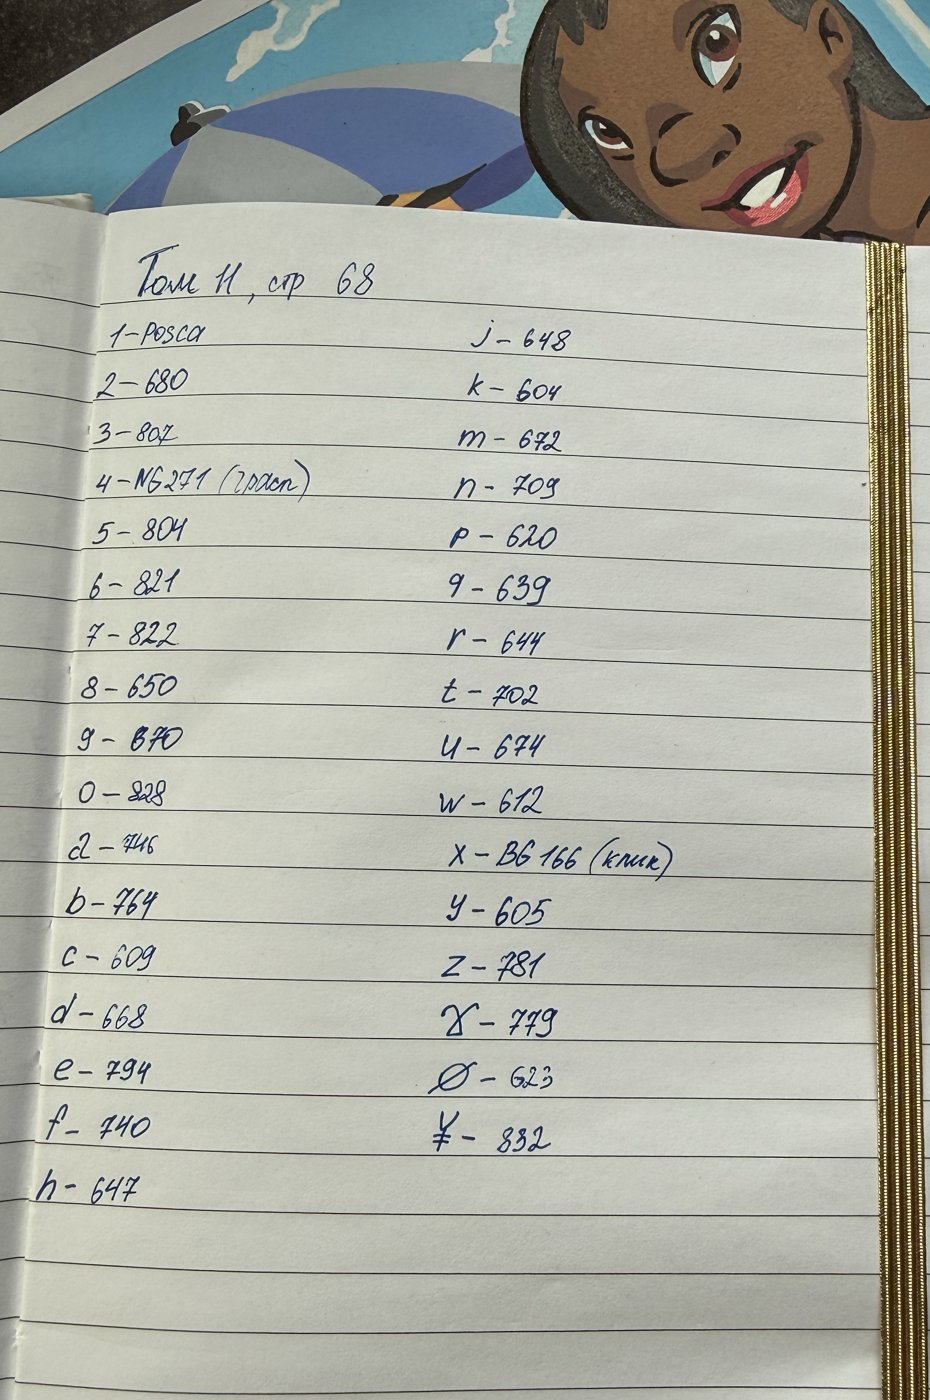 Том 11, стр 68
1-Posca
2-680
3-807
4-NG271 (грасп)
5-804
6-821
7-822
8-650
9-670
0-828
a-746
b-764
c-609
d-668
e-794
f-740
h-647
j-648
k-604
m-672
n-709
p-620
q-639
r-644
t-702
u-674
w-612
x-BG166 (клик)
y-605
z-781
-779
Ø-623
¥-832